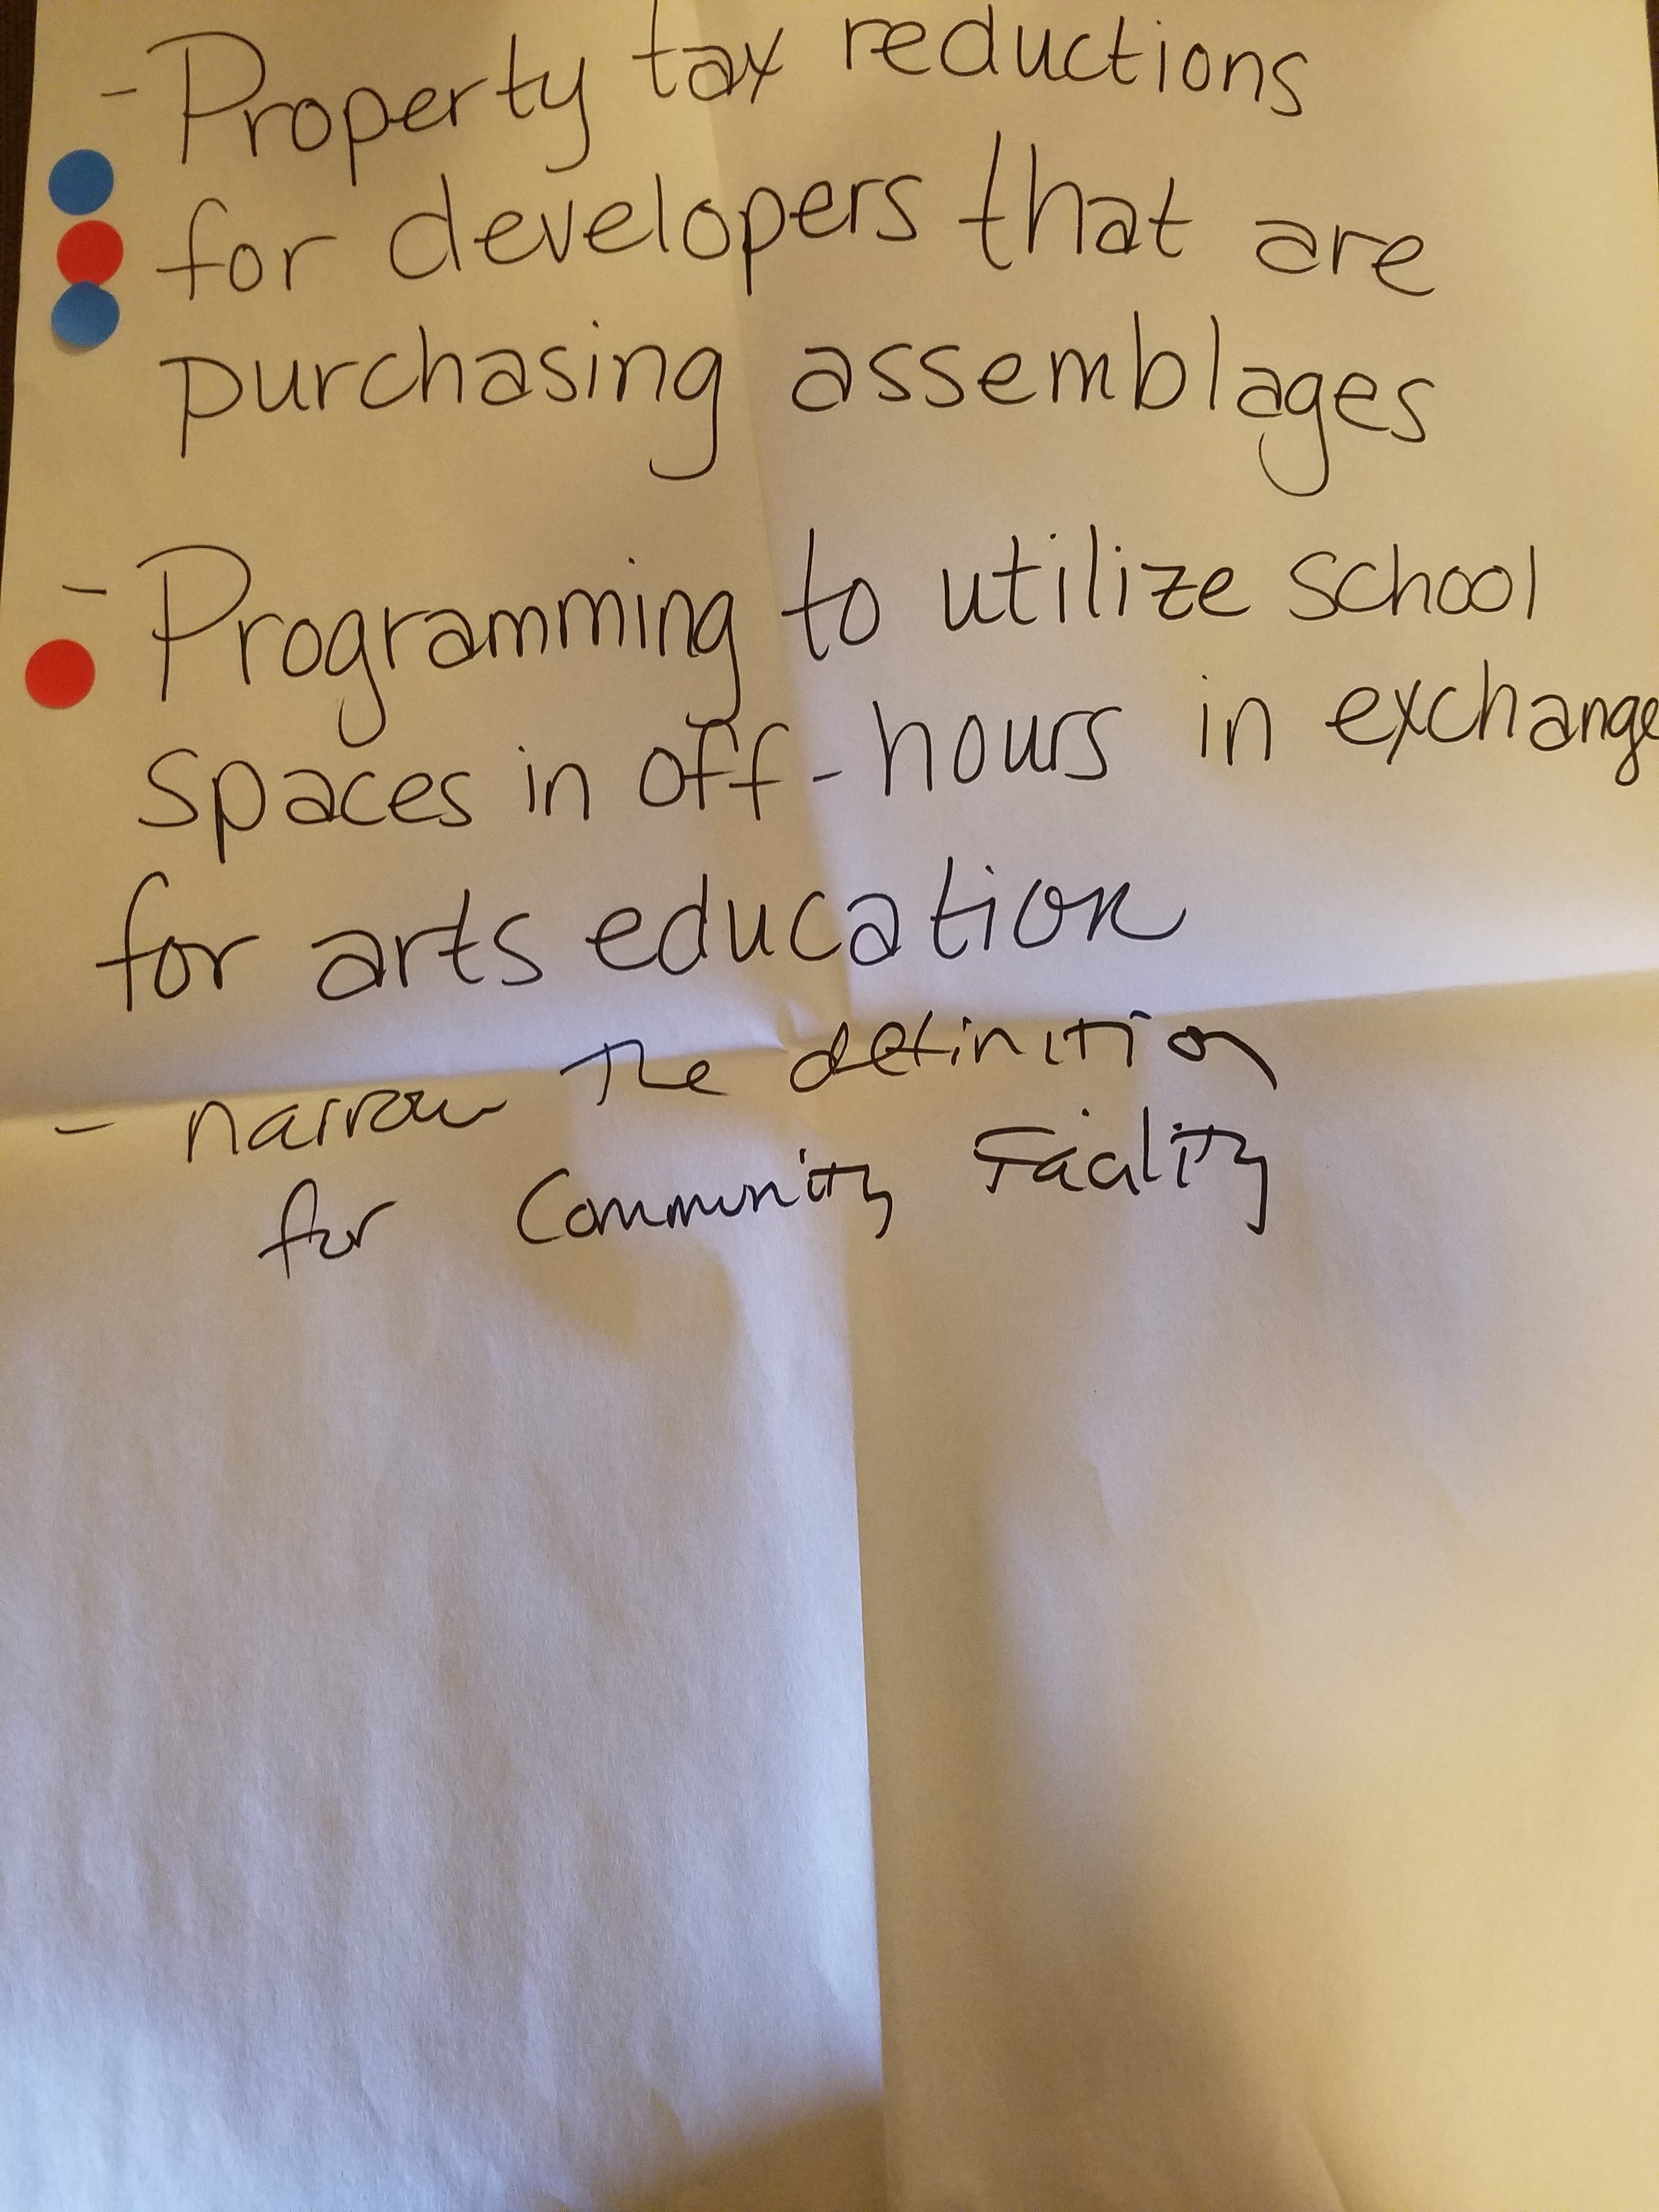 - Property tax reductions
for developers that are
purchasing assemblages
- Programming to utilize school
spaces in off-hours in exchange
for arts education
- narrow the definition
for Community Facility